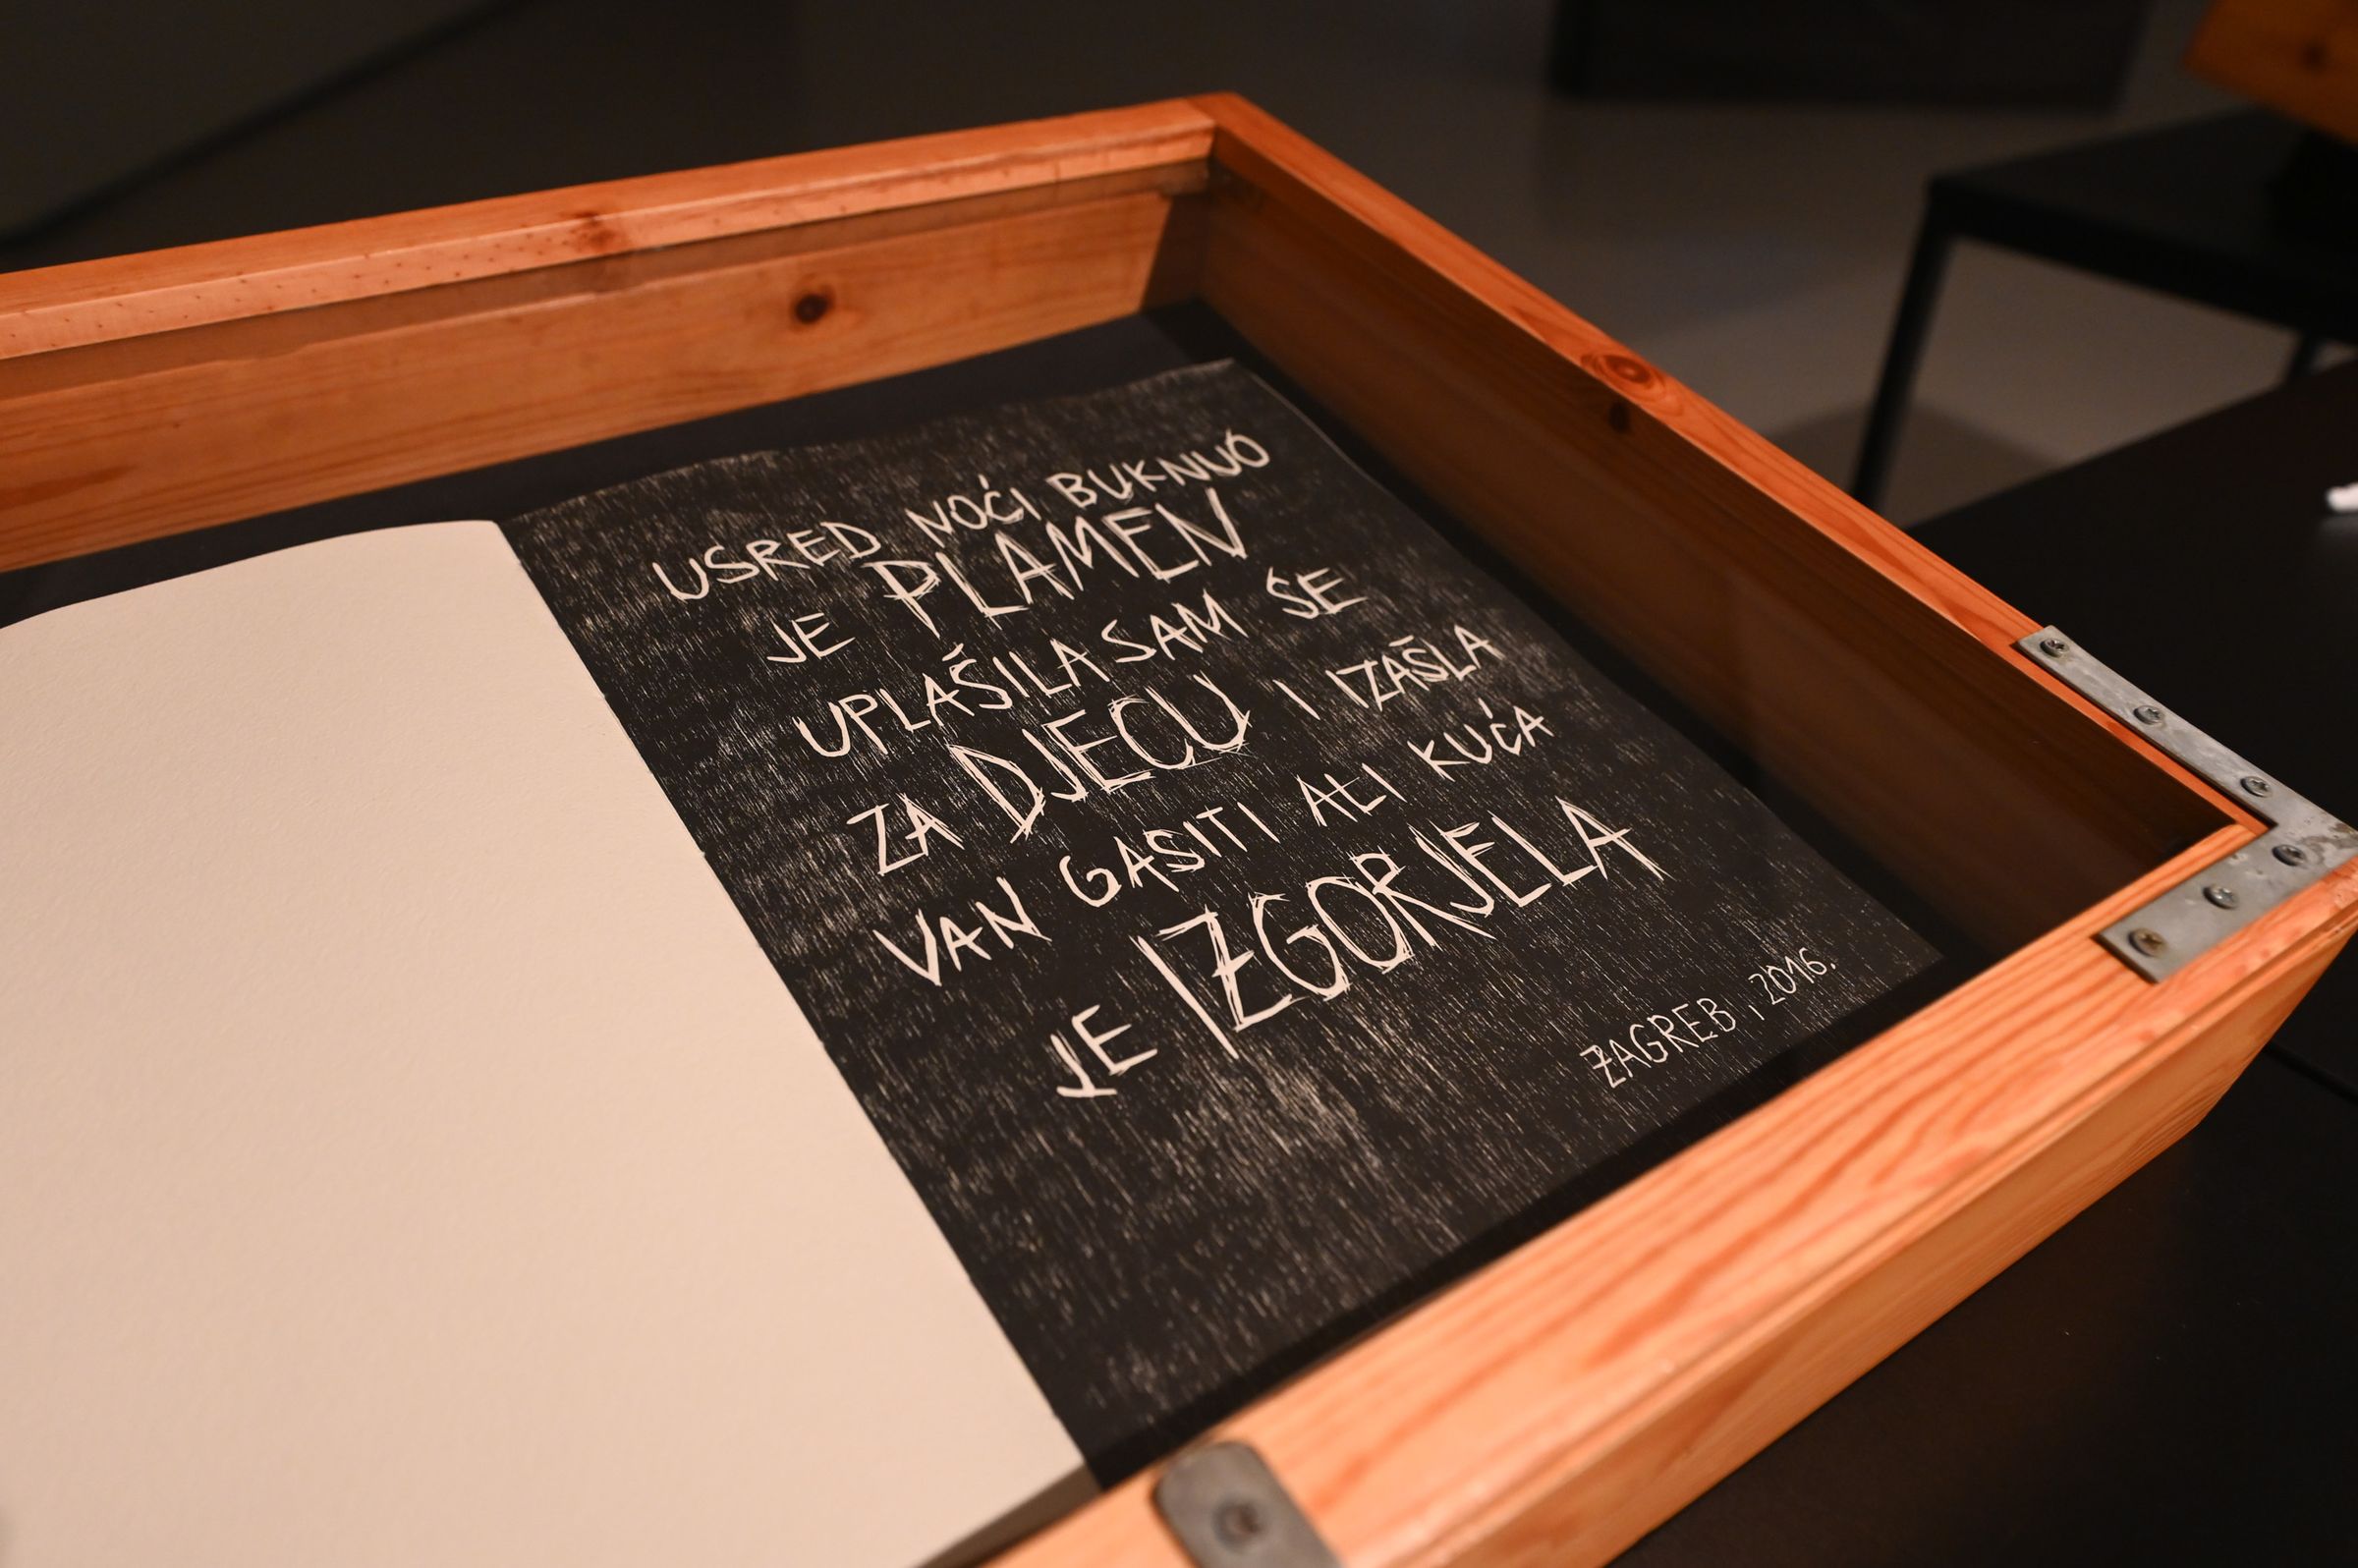 USRED NOĆI BUKNUO
JE PLAMEN
UPLAŠILA SAM SE
ZA DJECU I IZAŠLA
VAN GASITI ALI KUĆA
JE IZGORJELA
ZAGREB, 2016.